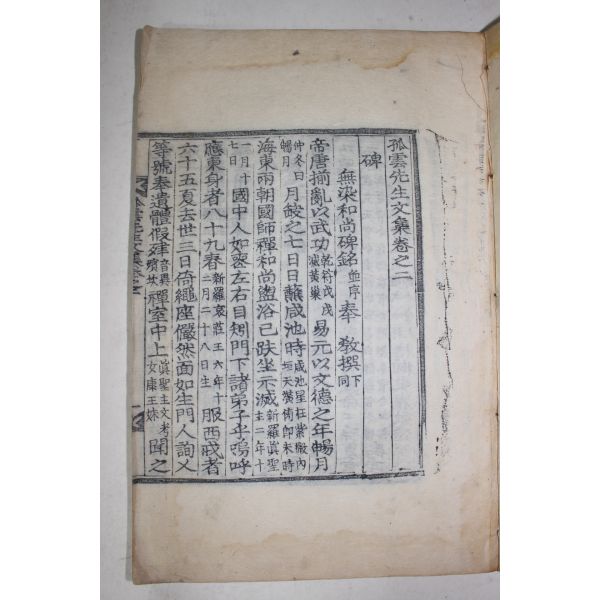 孤雲先生文集卷之二
碑
無染和尙碑銘 並序 奉 敎撰 下同
帝唐揃亂以武功 乾符戊戌滅黃巢 易元以文德之年暢月
仲冬曰暢月 月缺之七日日蘸咸池時 咸池星在紫微內垣天潢南卽未時
海東兩朝國師禪和尙盥浴已趺坐示滅 新羅眞聖主二年十
一月十七日 國中人如喪左右目矧門下諸弟子乎嗚呼
應東身者八十九春 新羅哀莊王六年十二月二十八日生 服西戎者
六十五夏去世三日倚繩座儼然面如生門人詢乂
等號奉遺體假肂 禪室中上 眞聖主文考女康王妹 聞之